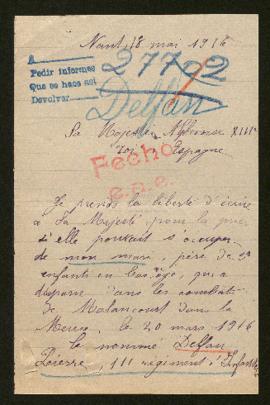 Nant, 18 mai 1916
A
Pedir informes
Que se haga así
Devolver
27702
Delfau
Sa Majesté Alphonse XIII
roi Espagne
Fecho
Je prends la liberté d'écrire
à Sa Majesté, pour la prier
si elle pouvait s'occuper
de mon mari, père de
enfants en bas-âge, qui a
disparu dans les combats
de Malancourt dans la
Meuse, le 20 mars 1916
le nommé Delfau
Pierre, 111 régiment d'Infanterie